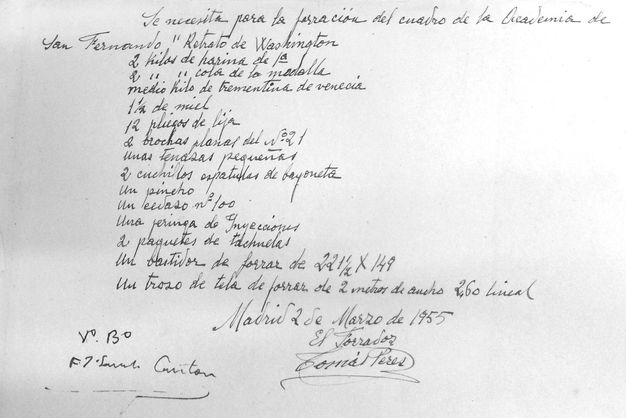 Se necesita para la forración del cuadro de la Academia de
San Fernando "Retrato de Washington
2 kilos de harina de 1ª
2 " " cola de la medalla
medio kilo de trementina de venecia
1½ de miel
12 pliegos de lija
2 brochas planas del Nº 21
unas tenazas pequeñas
2 cuchillos espatulas de bayoneta
un pincho
un cedazo nº 100
Una jeringa de Inyecciones
2 paquetes de tachuelas
Un bastidor de forrar de 221½ X 149
Un troso de tela de forrar de 2 metros de ancho 2,60 lineal
Madrid 2 de Marzo de 1955
El Forrador
Tomás Peres
Vº. Bº